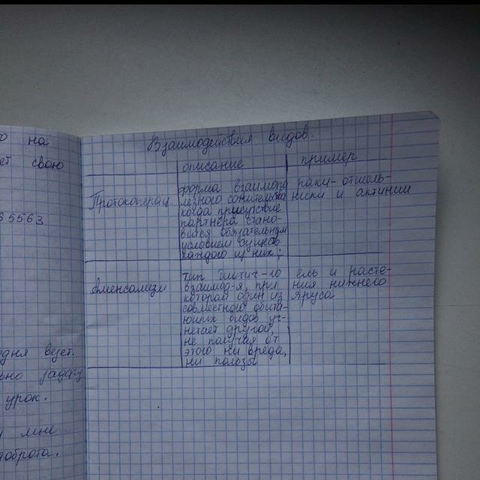 о на
ет свою
5563
дня везет.
ьно задачу
урок.
и мне
доброта.
Взаимодействия видов.
описание
пример
Протокопераци
форма взаимовы
лезного сожительства
когда присутствие
партнёра стано-
вится обязательным
условием сущнов.
каждого из них;
раки-отшель-
ники и актинии
Аменсализм
тип биотич-го
взаимод-я, при
котором один из
совместно обита-
ющих видов уг-
нетает другой,
не получая от
этого ни вреда,
ни пользы
ель и расте-
ния нижнего
яруса